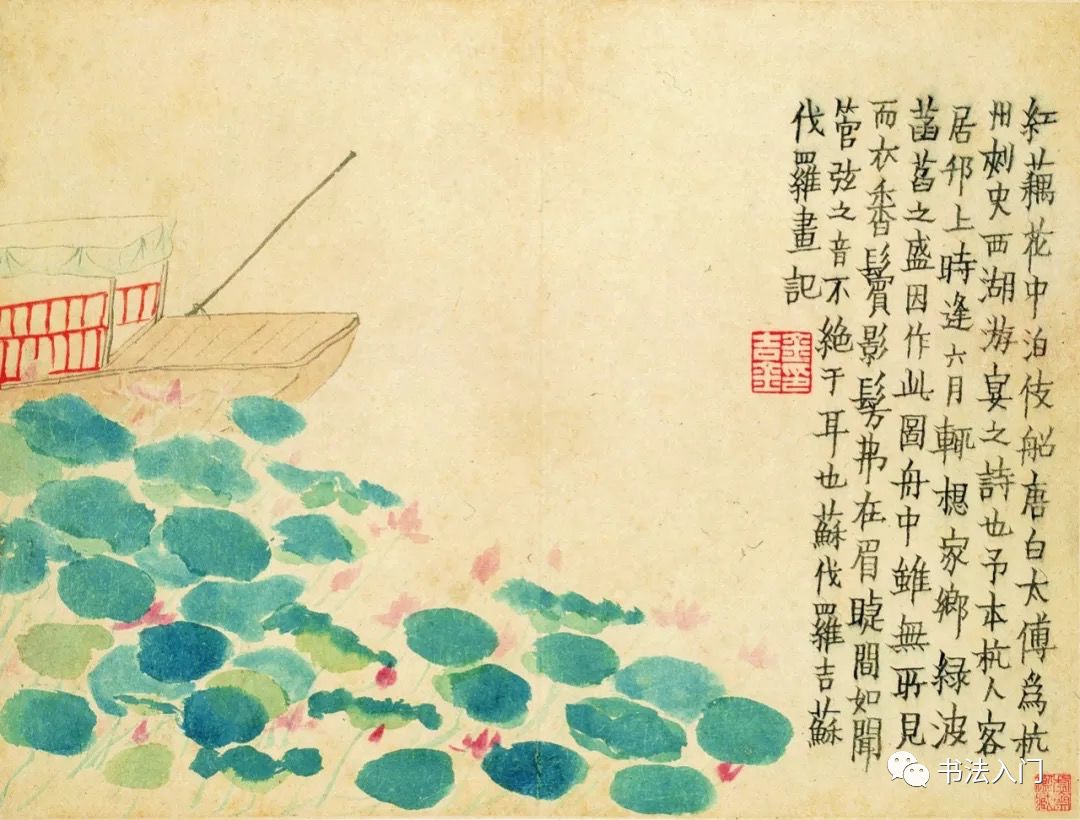 紅藕花中泊伎船唐白太傅爲杭
州刺史西湖游宴之詩也予本杭人客
居邗上時逢六月輒想家鄉緑波
菡萏之盛因作此圖舟中雖無所見
而衣香鬢影髣弗在眉睫間如聞
管弦之音不絶于耳也蘇伐羅吉蘇
伐羅畫記
金印
吉金
书法入门